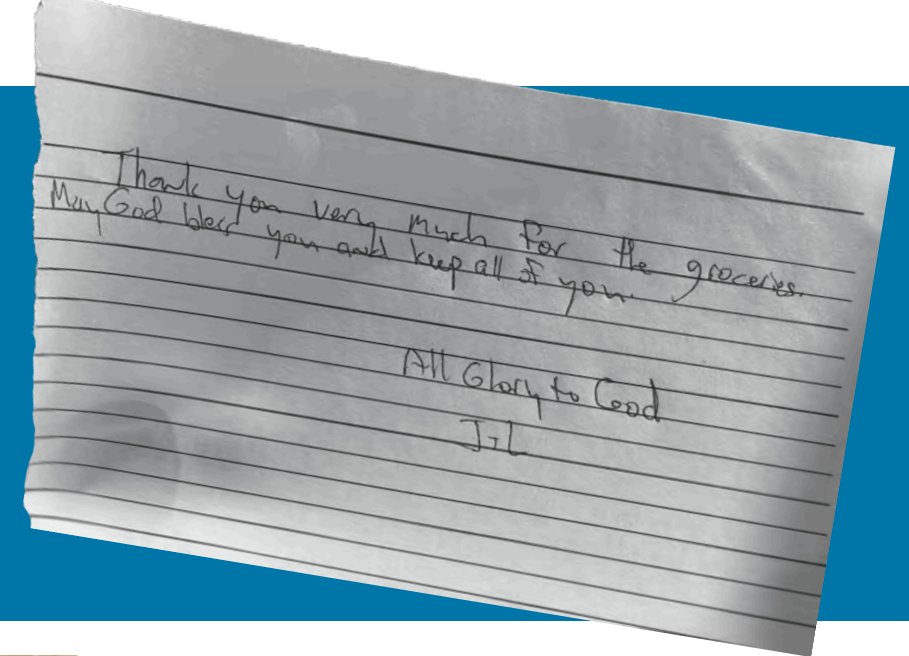 Thank you very much for the groceries.
May God bless you and keep all of you.
All Glory to God